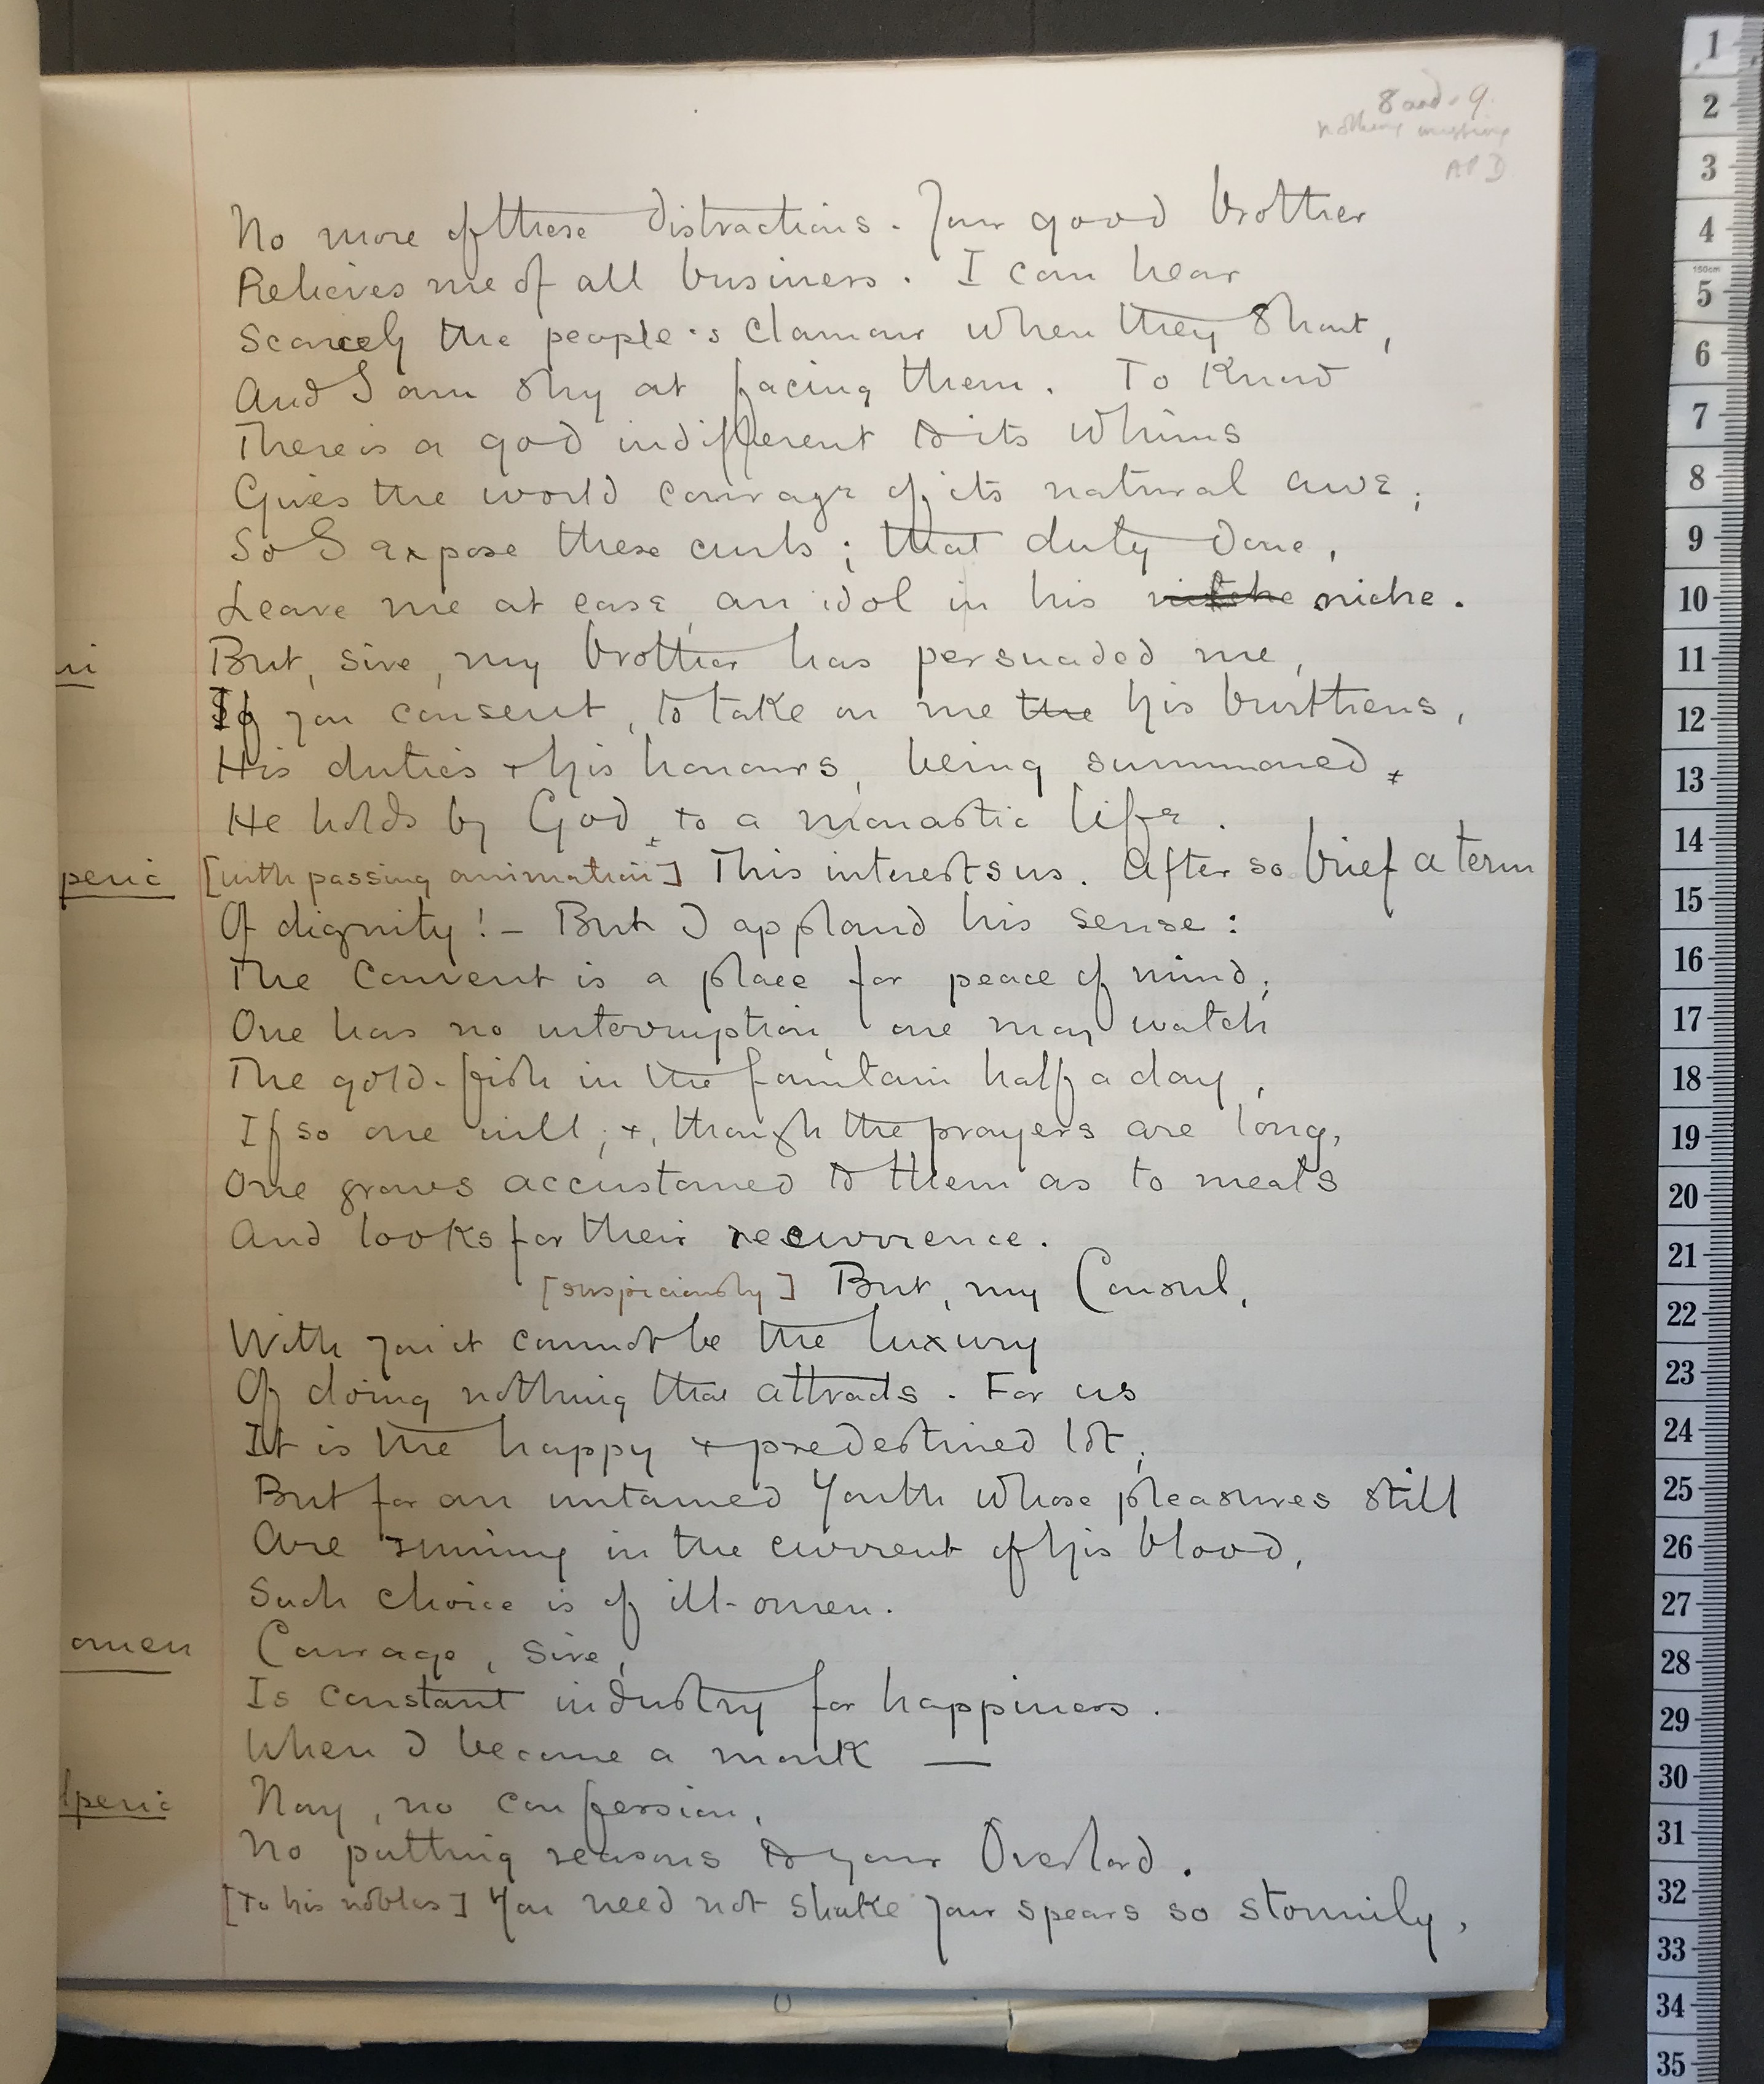 8 and 9.
nothing missing
APD
No more of these distractions. Your good brother
Relieves me of all business. I can hear
Scarcely the people's clamour when they shout,
And I am shy at facing them. To know
There is a god indifferent to its whims
Gives the world courage of its natural awe;
So I expose these curls; that duty done,
Leave me at ease, an idol in his niche.
ui But, sire, my brother has persuaded me,
If you consent, to take on me the his burthens,
His duties + his honours, being summoned,
He holds by God, to a monastic life.
peric [with passing animation] This interests us. After so brief a term
Of dignity! – But I applaud his sense:
The Convent is a place for peace of mind;
One has no interruption, one may watch
The gold-fish in the fountain half a day,
If so one will; +, though the prayers are long,
One grows accustomed to them as to meals
And looks for their recurrence.
[suspiciously] But, my Consul,
With you it cannot be the luxury
Of doing nothing that attracts. For us
It is the happy + predestined lot;
But for an untamed youth whose pleasures still
Are running in the current of his blood,
Such choice is of ill-omen.
omen Courage, sire,
Is constant industry for happiness.
When I become a monk —
lperic Nay, no confession,
No putting reasons to your Overlord.
[To his nobles] You need not shake your spears so stormily,
1
2
3
4
150cm
5
6
7
8
9
10
11
12
13
14
15
16
17
18
19
20
21
22
23
24
25
26
27
28
29
30
31
32
33
34
35